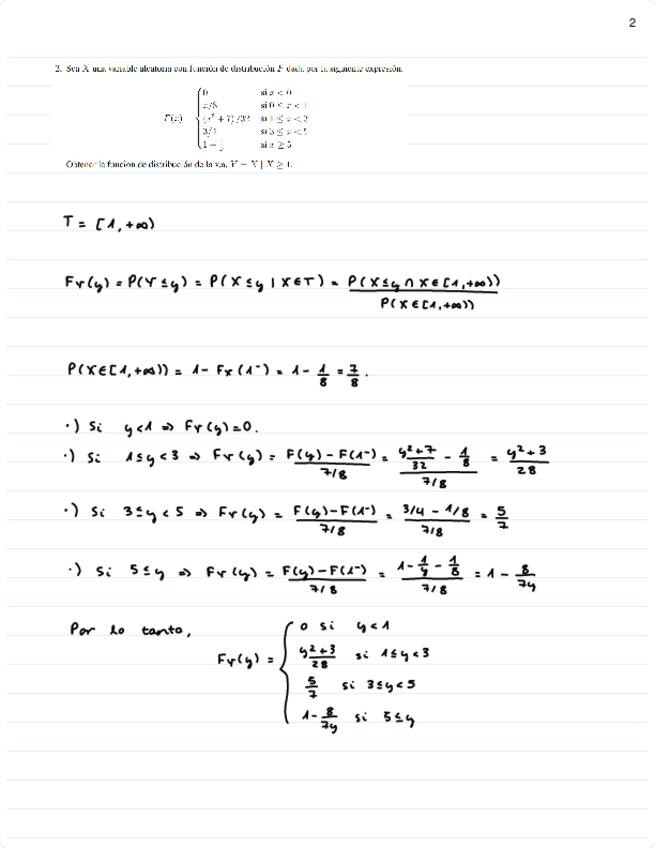 2
2. Sea X una variable aleatoria con función de distribución F dada por la siguiente expresión:
F(x) = 0 si x < 0
x/8 si 0 ≤ x < 1
(x² + 7)/32 si 1 ≤ x < 3
3/4 si 3 ≤ x < 5
1 − 1/x si x ≥ 5
Obtener la función de distribución de la v.a. Y = X | X ≥ 1.
T = [1, +∞)
Fy(y) = P(Y ≤ y) = P(X ≤ y | X ∈ T) = P(X ≤ y ∩ X ∈ [1, +∞)) / P(X ∈ [1, +∞))
P(X ∈ [1, +∞)) = 1 − Fx(1⁻) = 1 − 1/8 = 7/8.
·) Si y < 1 ⇒ Fy(y) = 0.
·) Si 1 ≤ y < 3 ⇒ Fy(y) = (F(y) − F(1⁻)) / (7/8) = ((y² + 7)/32 − 1/8) / (7/8) = (y² + 3)/28
·) Si 3 ≤ y < 5 ⇒ Fy(y) = (F(y) − F(1⁻)) / (7/8) = (3/4 − 1/8) / (7/8) = 5/7
·) Si 5 ≤ y ⇒ Fy(y) = (F(y) − F(1⁻)) / (7/8) = (1 − 1/y − 1/8) / (7/8) = 1 − 8/7y
Por lo tanto,
Fy(y) = 0 si y < 1
(y² + 3)/28 si 1 ≤ y < 3
5/7 si 3 ≤ y < 5
1 − 8/7y si 5 ≤ y